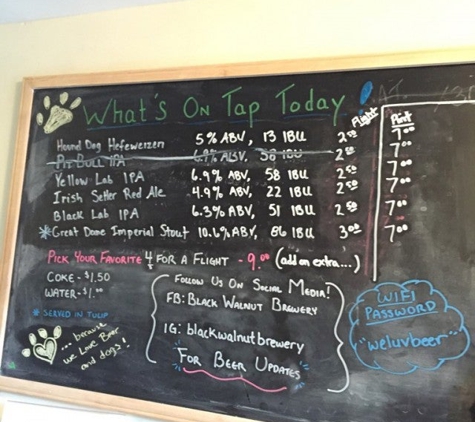 What's On Tap Today!
Flight Pint
Hound Dog Hefeweizen 5% ABV, 13 IBU 2⁵⁰ 7⁰⁰
Pit Bull IPA 6.9% ABV, 58 IBU 2⁵⁰ 7⁰⁰
Yellow Lab IPA 6.9% ABV, 58 IBU 2⁵⁰ 7⁰⁰
Irish Setter Red Ale 4.9% ABV, 22 IBU 2⁵⁰ 7⁰⁰
Black Lab IPA 6.3% ABV, 51 IBU 2⁵⁰ 7⁰⁰
*Great Dane Imperial Stout 10.6% ABV, 86 IBU 3⁰⁰ 7⁰⁰
Pick Your Favorite 4 for a Flight - 9.⁰⁰ (add an extra...)
Coke - $1.50
Water - $1.⁰⁰
* Served in Tulip
... because
we love Beer
and dogs!
Follow Us On Social Media!
FB: Black Walnut Brewery
IG: blackwalnutbrewery
"For Beer Updates"
WiFi
Password
"weluvbeer"